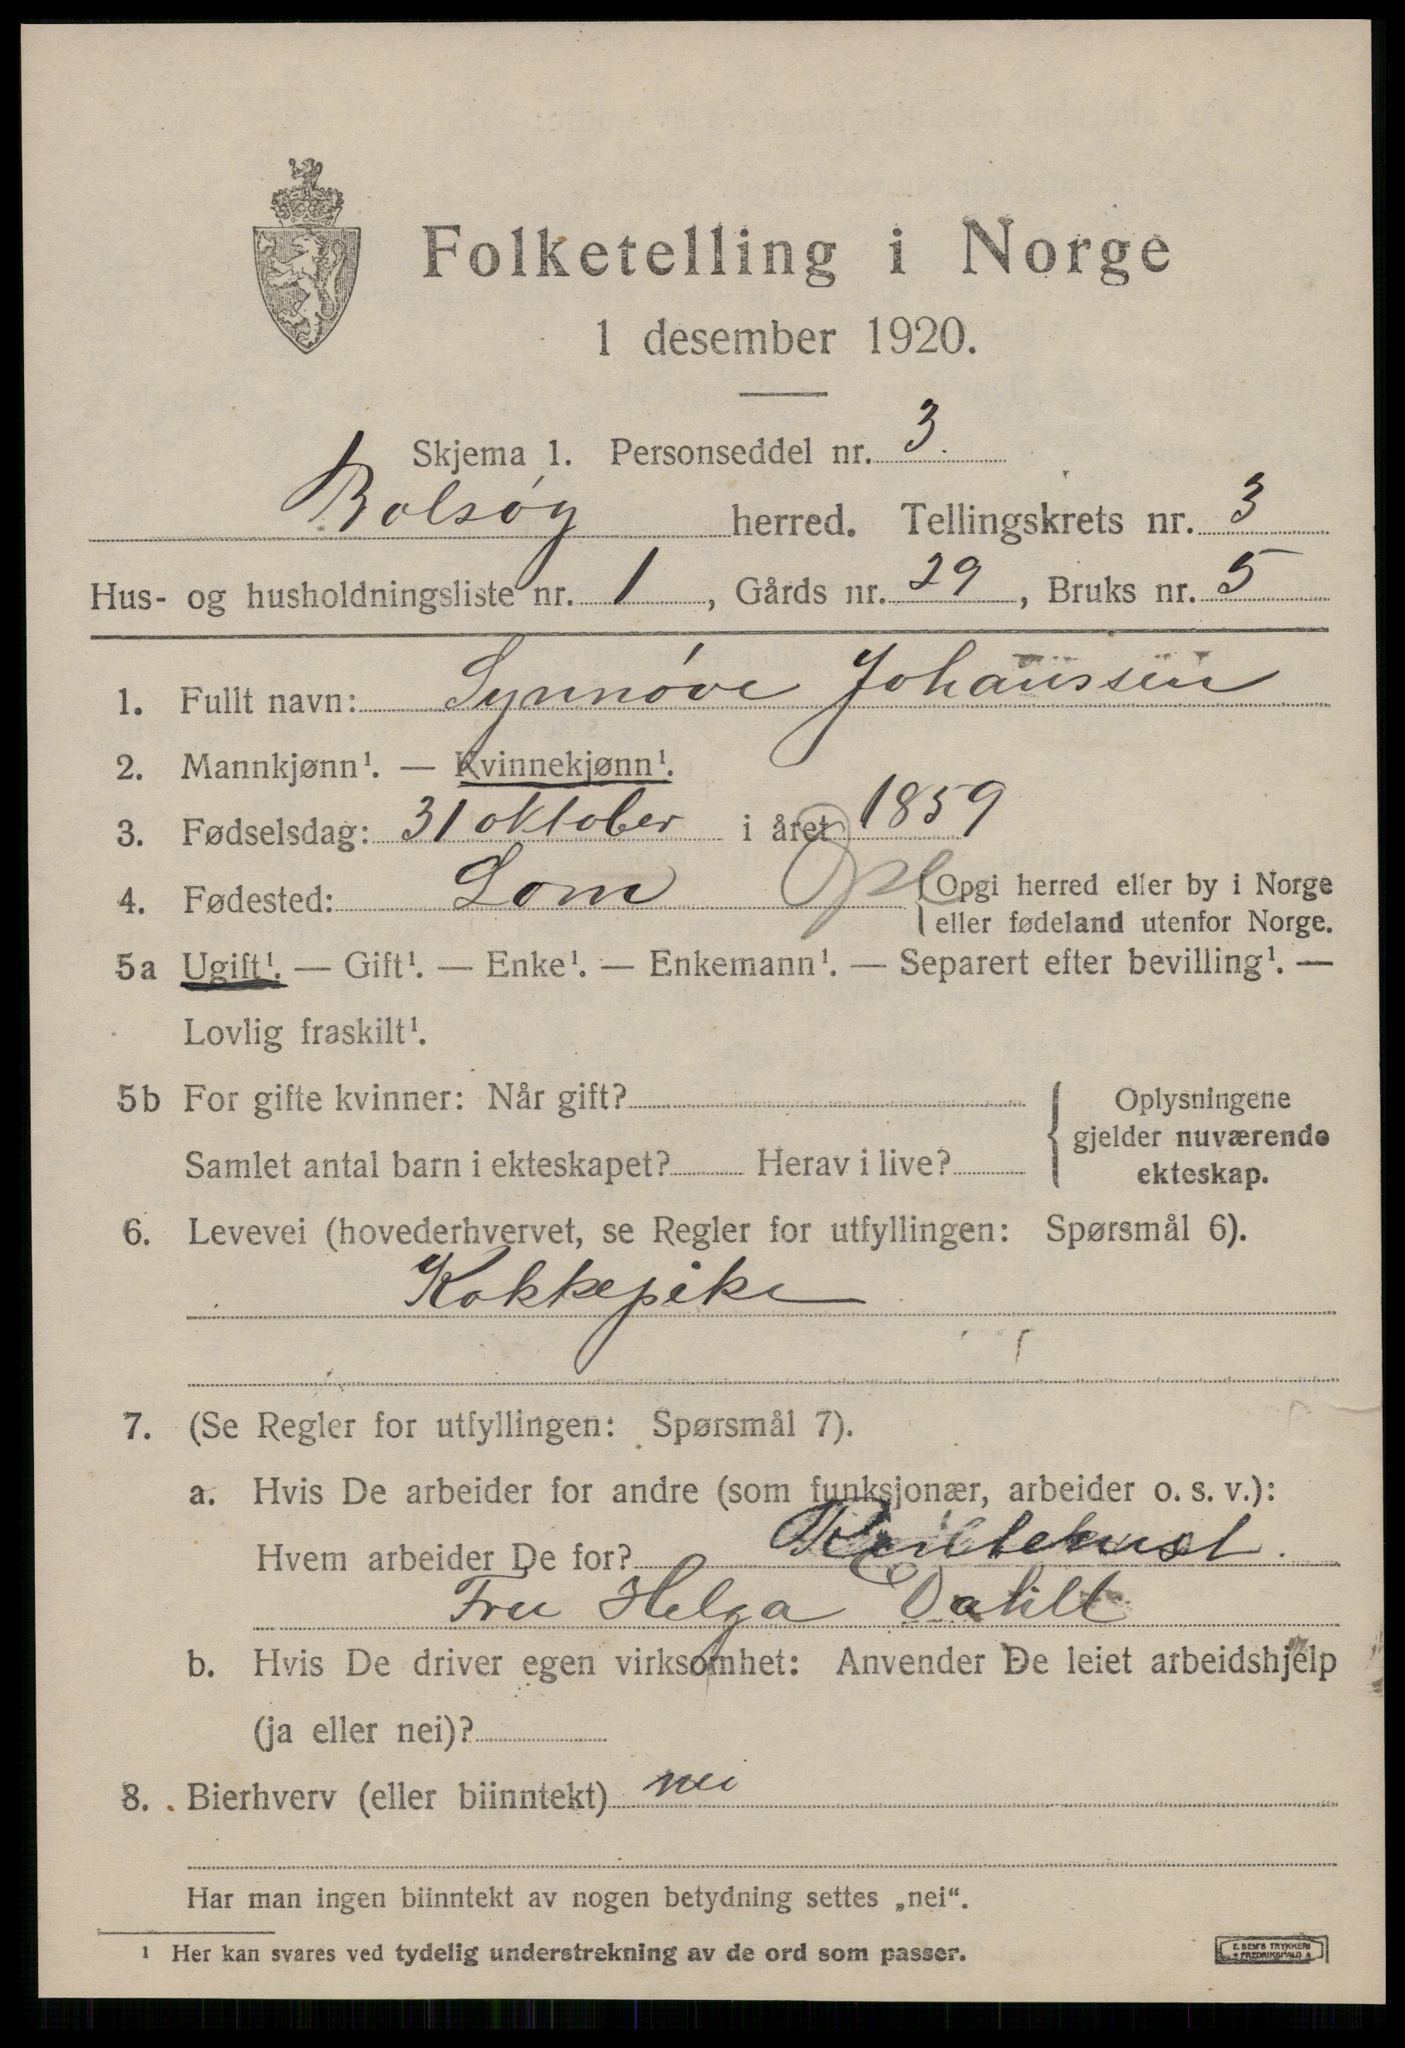 Folketelling i Norge
1 desember 1920.
Skjema 1. Personseddel nr. 3.
Bolsøy herred. Tellingskrets nr. 3
Hus- og husholdningsliste nr. 1, Gårds nr. 29, Bruks nr. 5
1. Fullt navn: Synnøve Johanssen
2. Mannkjønn¹. — Kvinnekjønn¹.
3. Fødselsdag: 31 oktober i året 1859
4. Fødested: Lom Opl Opgi herred eller by i Norge
eller fødeland utenfor Norge.
5a Ugift¹. — Gift¹. — Enke¹. — Enkemann¹. — Separert efter bevilling¹. —
Lovlig fraskilt¹.
5b For gifte kvinner: Når gift? Oplysningene
gjelder nuværende
Samlet antal barn i ekteskapet? Herav i live?
ekteskap.
6. Levevei (hovederhvervet, se Regler for utfyllingen: Spørsmål 6).
Kokkepike
7. (Se Regler for utfyllingen: Spørsmål 7).
a. Hvis De arbeider for andre (som funksjonær, arbeider o. s. v.):
Hvem arbeider De for?
Fru Helga Dahl
b. Hvis De driver egen virksomhet: Anvender De leiet arbeidshjelp
(ja eller nei)?
8. Bierhverv (eller biinntekt) nei
Har man ingen biinntekt av nogen betydning settes „nei“.
¹ Her kan svares ved tydelig understrekning av de ord som passer.
E. SEM'S TRYKKERI
FREDRIKSHALD